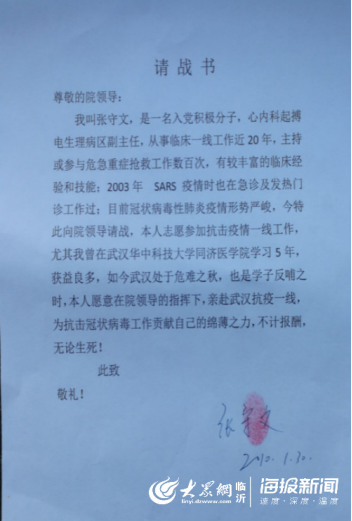 请战书
尊敬的院领导：
我叫张守文，是一名入党积极分子，心内科起搏
电生理病区副主任，从事临床一线工作近20年，主持
或参与危急重症抢救工作数百次，有较丰富的临床经
验和技能；2003年 SARS 疫情时也在急诊及发热门
诊工作过；目前冠状病毒性肺炎疫情形势严峻，今特
此向院领导请战，本人志愿参加抗击疫情一线工作，
尤其我曾在武汉华中科技大学同济医学院学习5年，
获益良多，如今武汉处于危难之秋，也是学子反哺之
时，本人愿意在院领导的指挥下，亲赴武汉抗疫一线，
为抗击冠状病毒工作贡献自己的绵薄之力，不计报酬，
无论生死！
此致
敬礼！
张守文
大众网 临沂
linyi.dzwww.com
海报新闻
速度·深度·温度